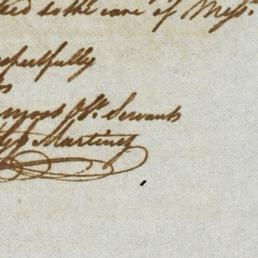 to the care of Messrs.
respectfully
most Ob. Servants
Martinez